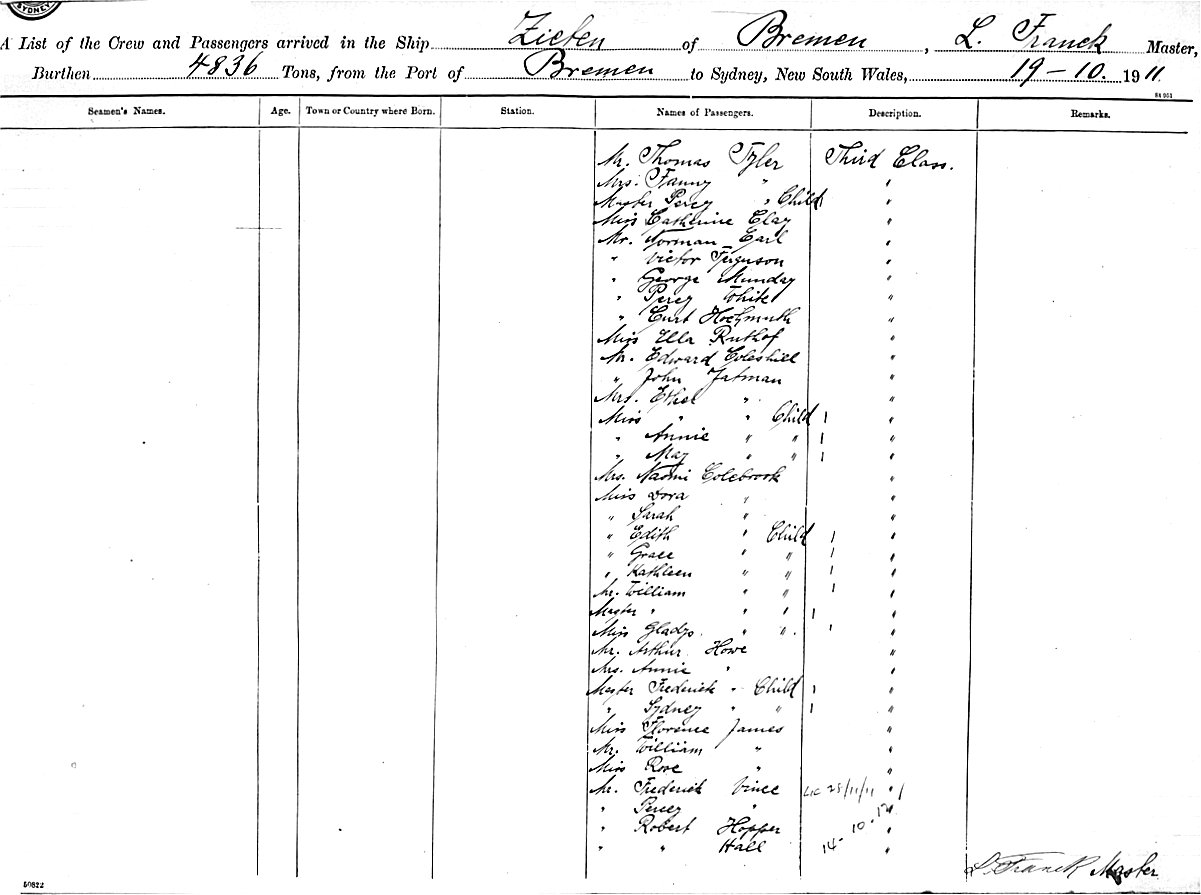 SYDNEY
A List of the Crew and Passengers arrived in the Ship Zieten of Bremen, L. Franck Master,
Burthen 4836 Tons, from the Port of Bremen to Sydney, New South Wales, 19-10. 1911
Seamen's Names. Age. Town or Country where Born. Station. Names of Passengers. Description. Remarks.
Mr. Thomas Tyler Third Class.
Mrs. Fanny " "
Master Percy " Child 1 "
Miss Catherine Clay "
Mr. Norman Earl "
" Victor Ferguson "
" George Munday "
" Percy White "
" Curt Hochmuth "
Miss Ella Ruthof "
Mr. Edward Coleshill "
" John Jatman "
Mrs. Ethel " "
Miss " " Child 1 "
" Annie " " 1 "
" May " " 1 "
Mrs. Naomi Colebrook "
Miss Dora " "
" Sarah " "
" Edith " Child 1 "
" Grace " " 1 "
" Kathleen " " 1 "
Mr. William " " 1 "
Master " " " 1 "
Miss Gladys. " ". 1 "
Mr. Arthur Howe "
Mrs. Annie " "
Master Frederick " Child 1 "
" Sydney " " 1 "
Miss Florence James "
Mr. William " "
Miss Rose " "
Mr. Frederick Vince 28/11/11 " 1
" Percy " "
" Robert Hopper "
" " Hall 14-10-12 "
L. Franck Master
50822